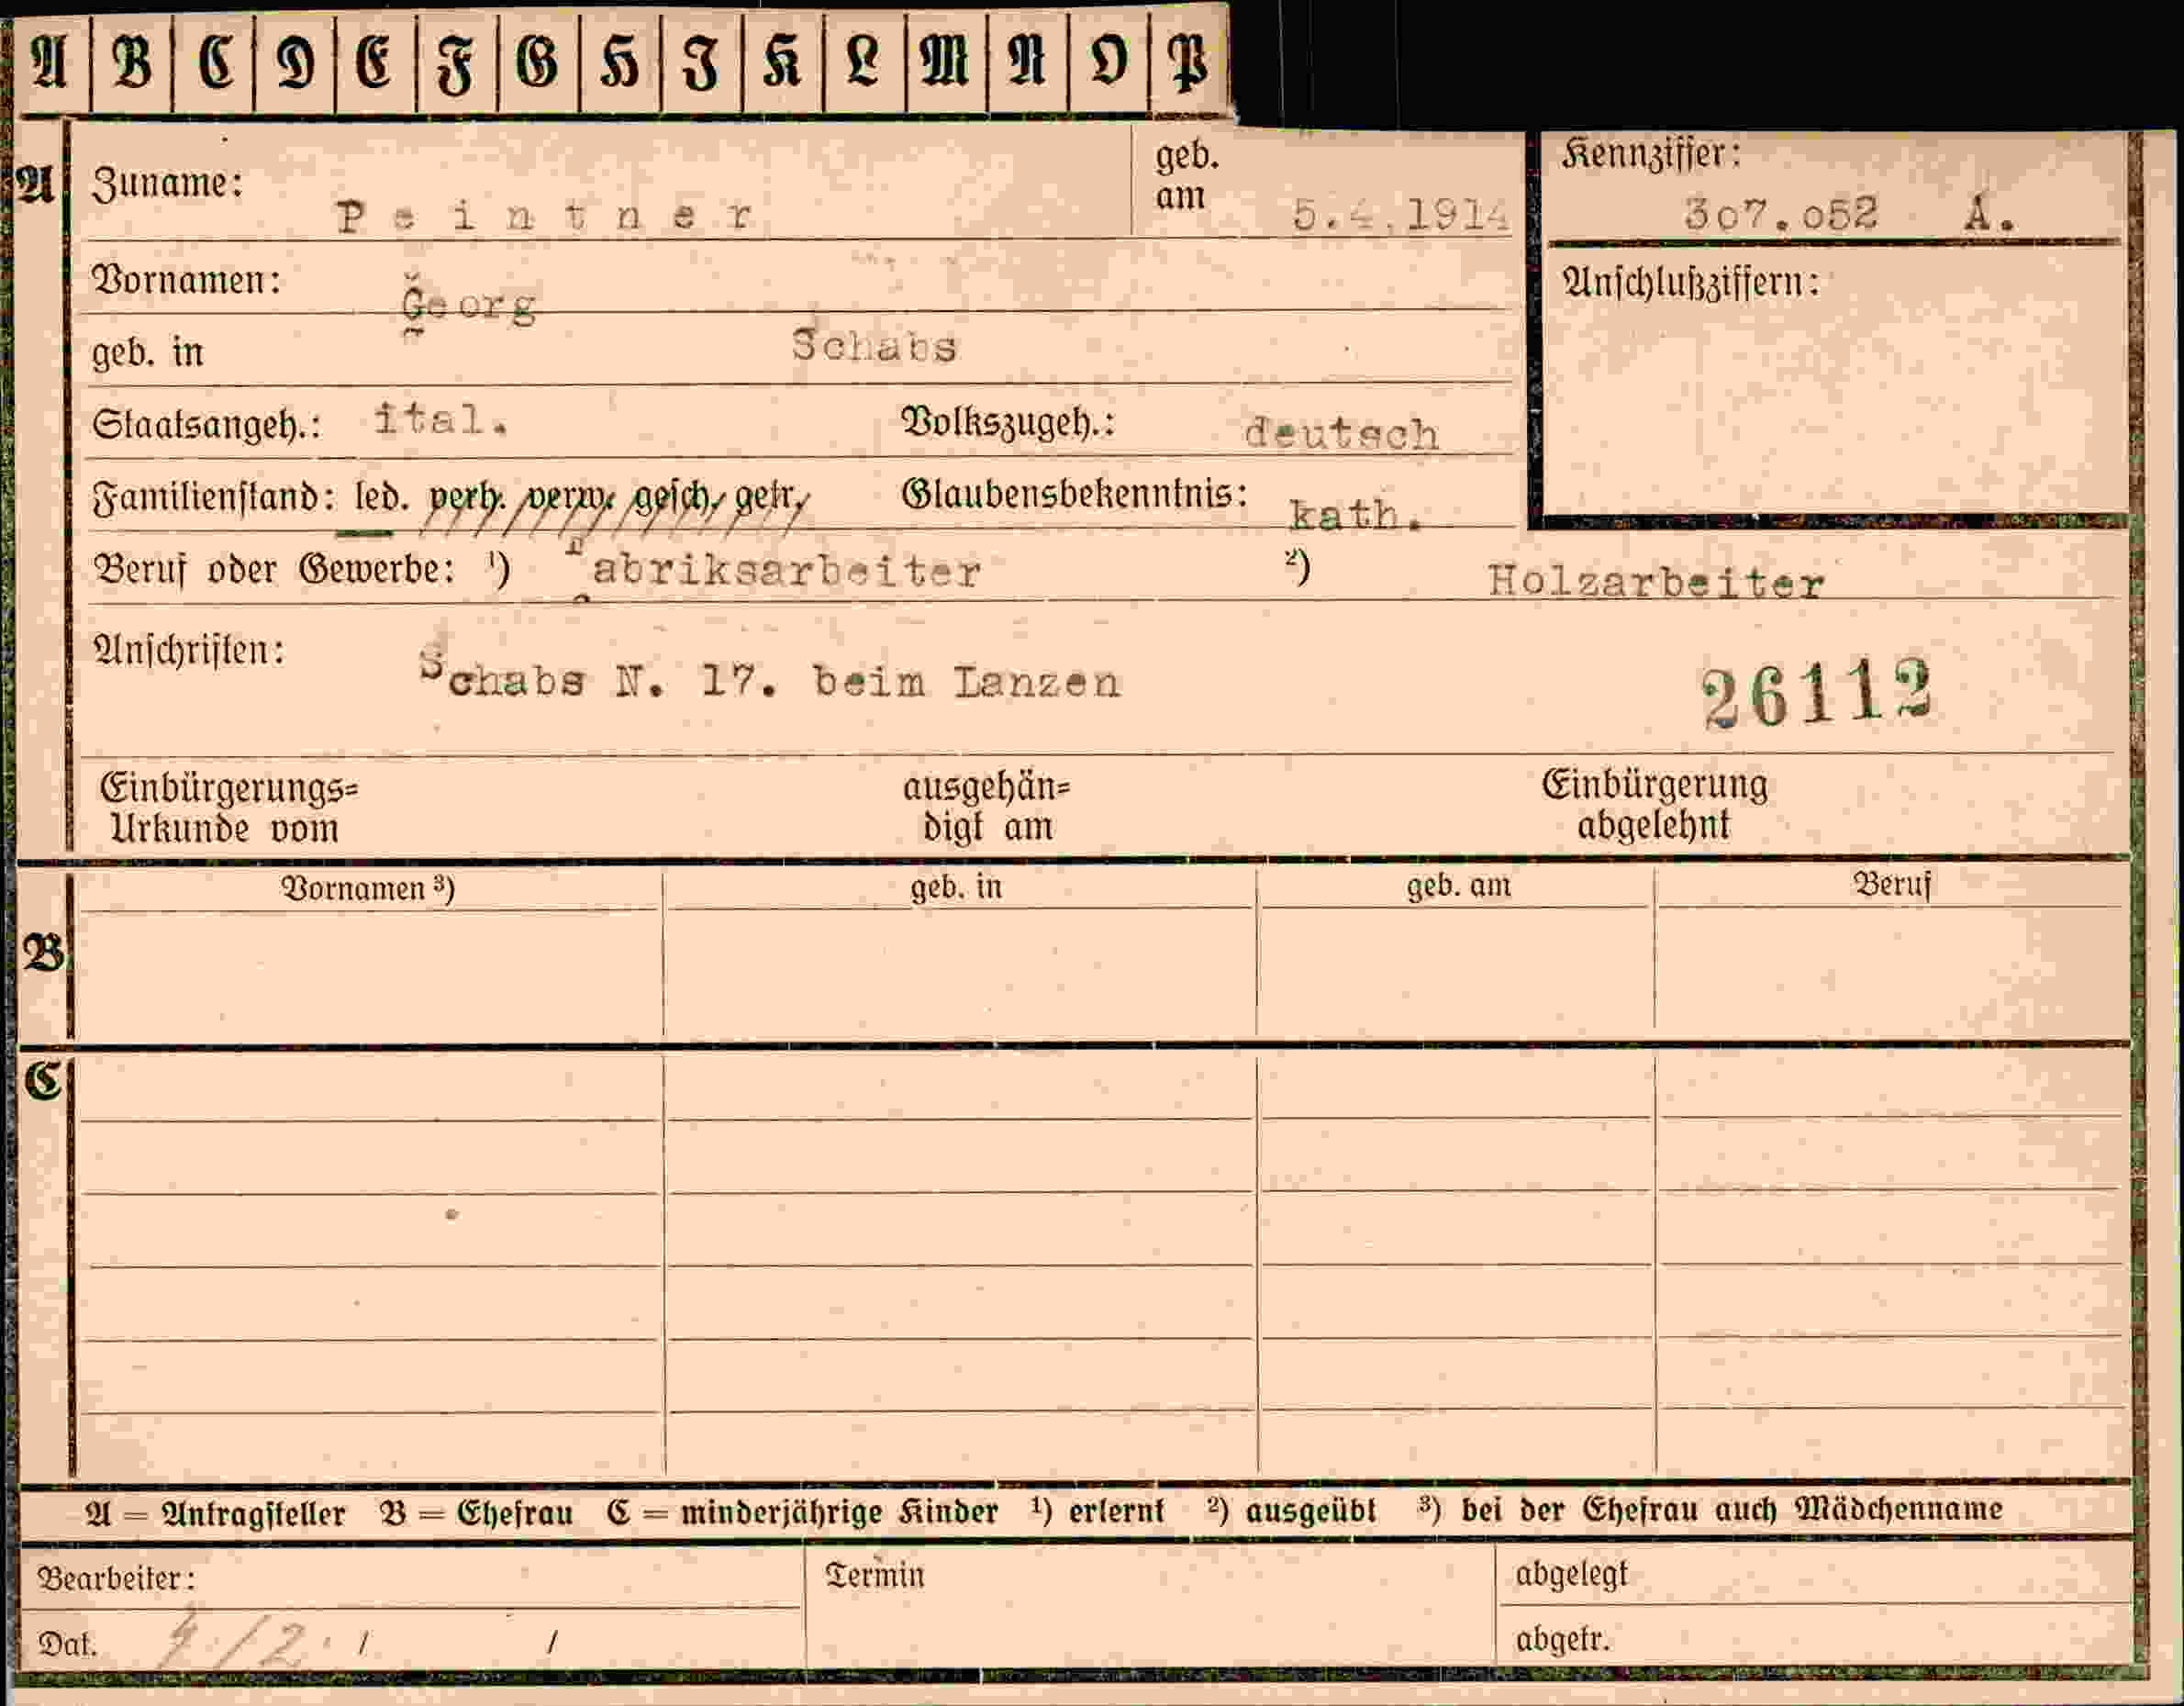 A B C D E F G H I K L M N O P
A Zuname: Peintner geb. am 5.4.1914
Kennziffer: 307.052 A.
Vornamen: Georg
Anschlußziffern:
geb. in Schabs
Staatsangeh.: ital. Volkszugeh.: deutsch
Familienstand: led. verh. verw. gesch. getr. Glaubensbekenntnis: kath.
Beruf oder Gewerbe: ¹) Fabriksarbeiter ²) Holzarbeiter
Anschriften: Schabs N. 17. beim Lanzen 26112
Einbürgerungs= ausgehän= Einbürgerung
Urkunde vom digt am abgelehnt
Vornamen ³) geb. in geb. am Beruf
B
C
A = Antragsteller B = Ehefrau C = minderjährige Kinder ¹) erlernt ²) ausgeübt ³) bei der Ehefrau auch Mädchenname
Bearbeiter: Termin abgelegt
Dat. / / abgetr.